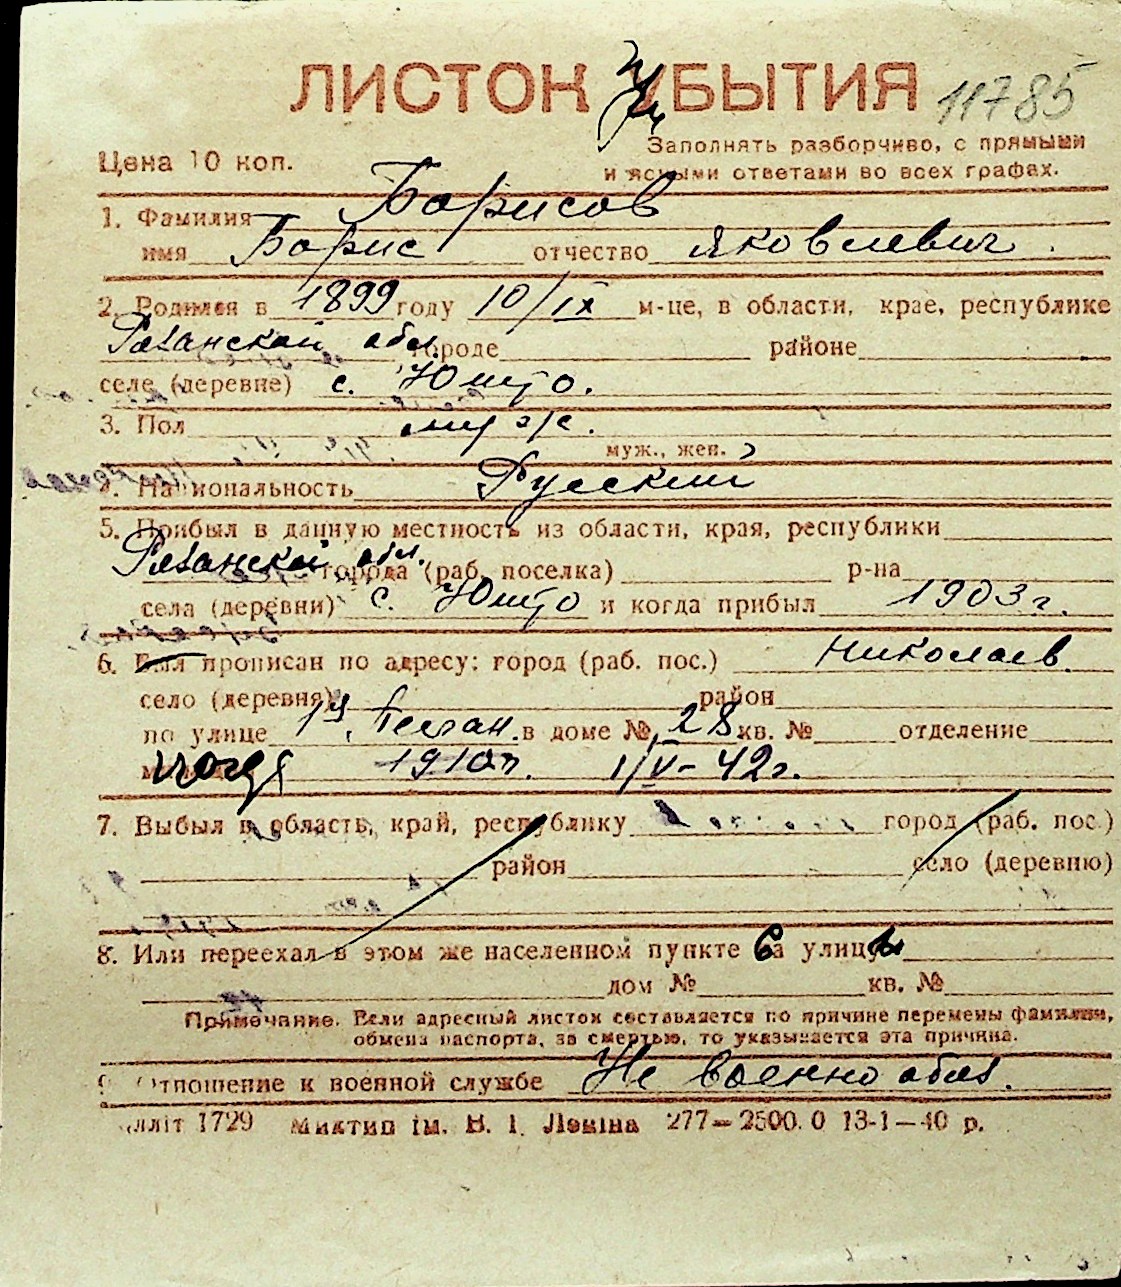 ЛИСТОК УБЫТИЯ 11785
Цена 10 коп.
Заполнять разборчиво, с прямыми
и ясными ответами во всех графах.
1. Фамилия Борисов
имя Борис отчество Яковлевич
2. Родился в 1899 году 10/IX м-це, в области, крае, республике
Рязанской обл. городе районе
селе (деревне) с. Юшто.
3. Пол муж.
муж., жен.
4. Национальность Русский
5. Прибыл в данную местность из области, края, республики
Рязанской обл. города (раб. поселка) р-на
села (деревни) с. Юшто и когда прибыл 1903 г.
6. Был прописан по адресу: город (раб. пос.) Николаев
село (деревня) район
по улице 1я Песчан. в доме № 28 кв. № отделение
когда 1/V-42г.
7. Выбыл в область, край, республику город (раб. пос.)
район село (деревню)
8. Или переехал в этом же населенном пункте са улицы
дом № кв. №
Примечание. Если адресный листок составляется по причине перемены фамилии,
обмена паспорта, за смертью, то указывается эта причина.
9 Отношение к военной службе Не военнообяз.
лліт 1729 Миктип ім. В. І. Леніна 277—2500. 0 13-1—40 р.